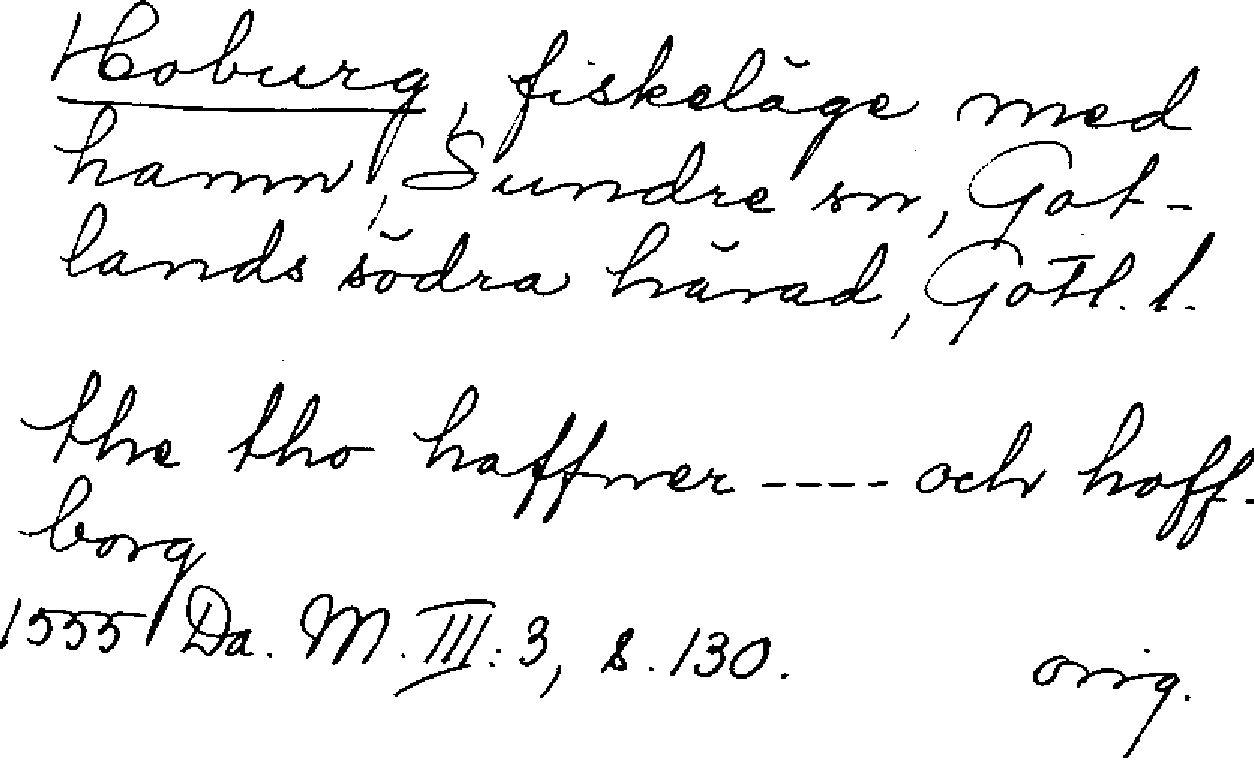 Hoburg, fiskeläge med
hamn, Sundre sn, Got-
lands södra härad, Gotl. l.
the tho haffner ---- och hoff-
borg
1555 Da. M. III: 3, s. 130. orig.